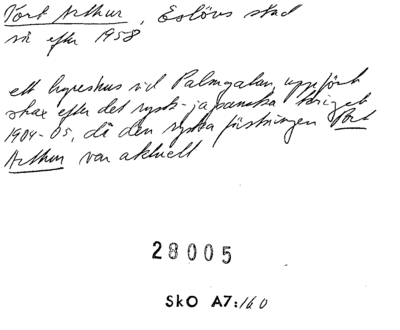 Port Arthur, Eslövs stad
så efter 1958
ett hyreshus vid Palmgatan, uppfört
strax efter det rysk-japanska kriget
1904-05, då den ryska fästningen Port
Arthur var aktuell
28005
SkO A7:160